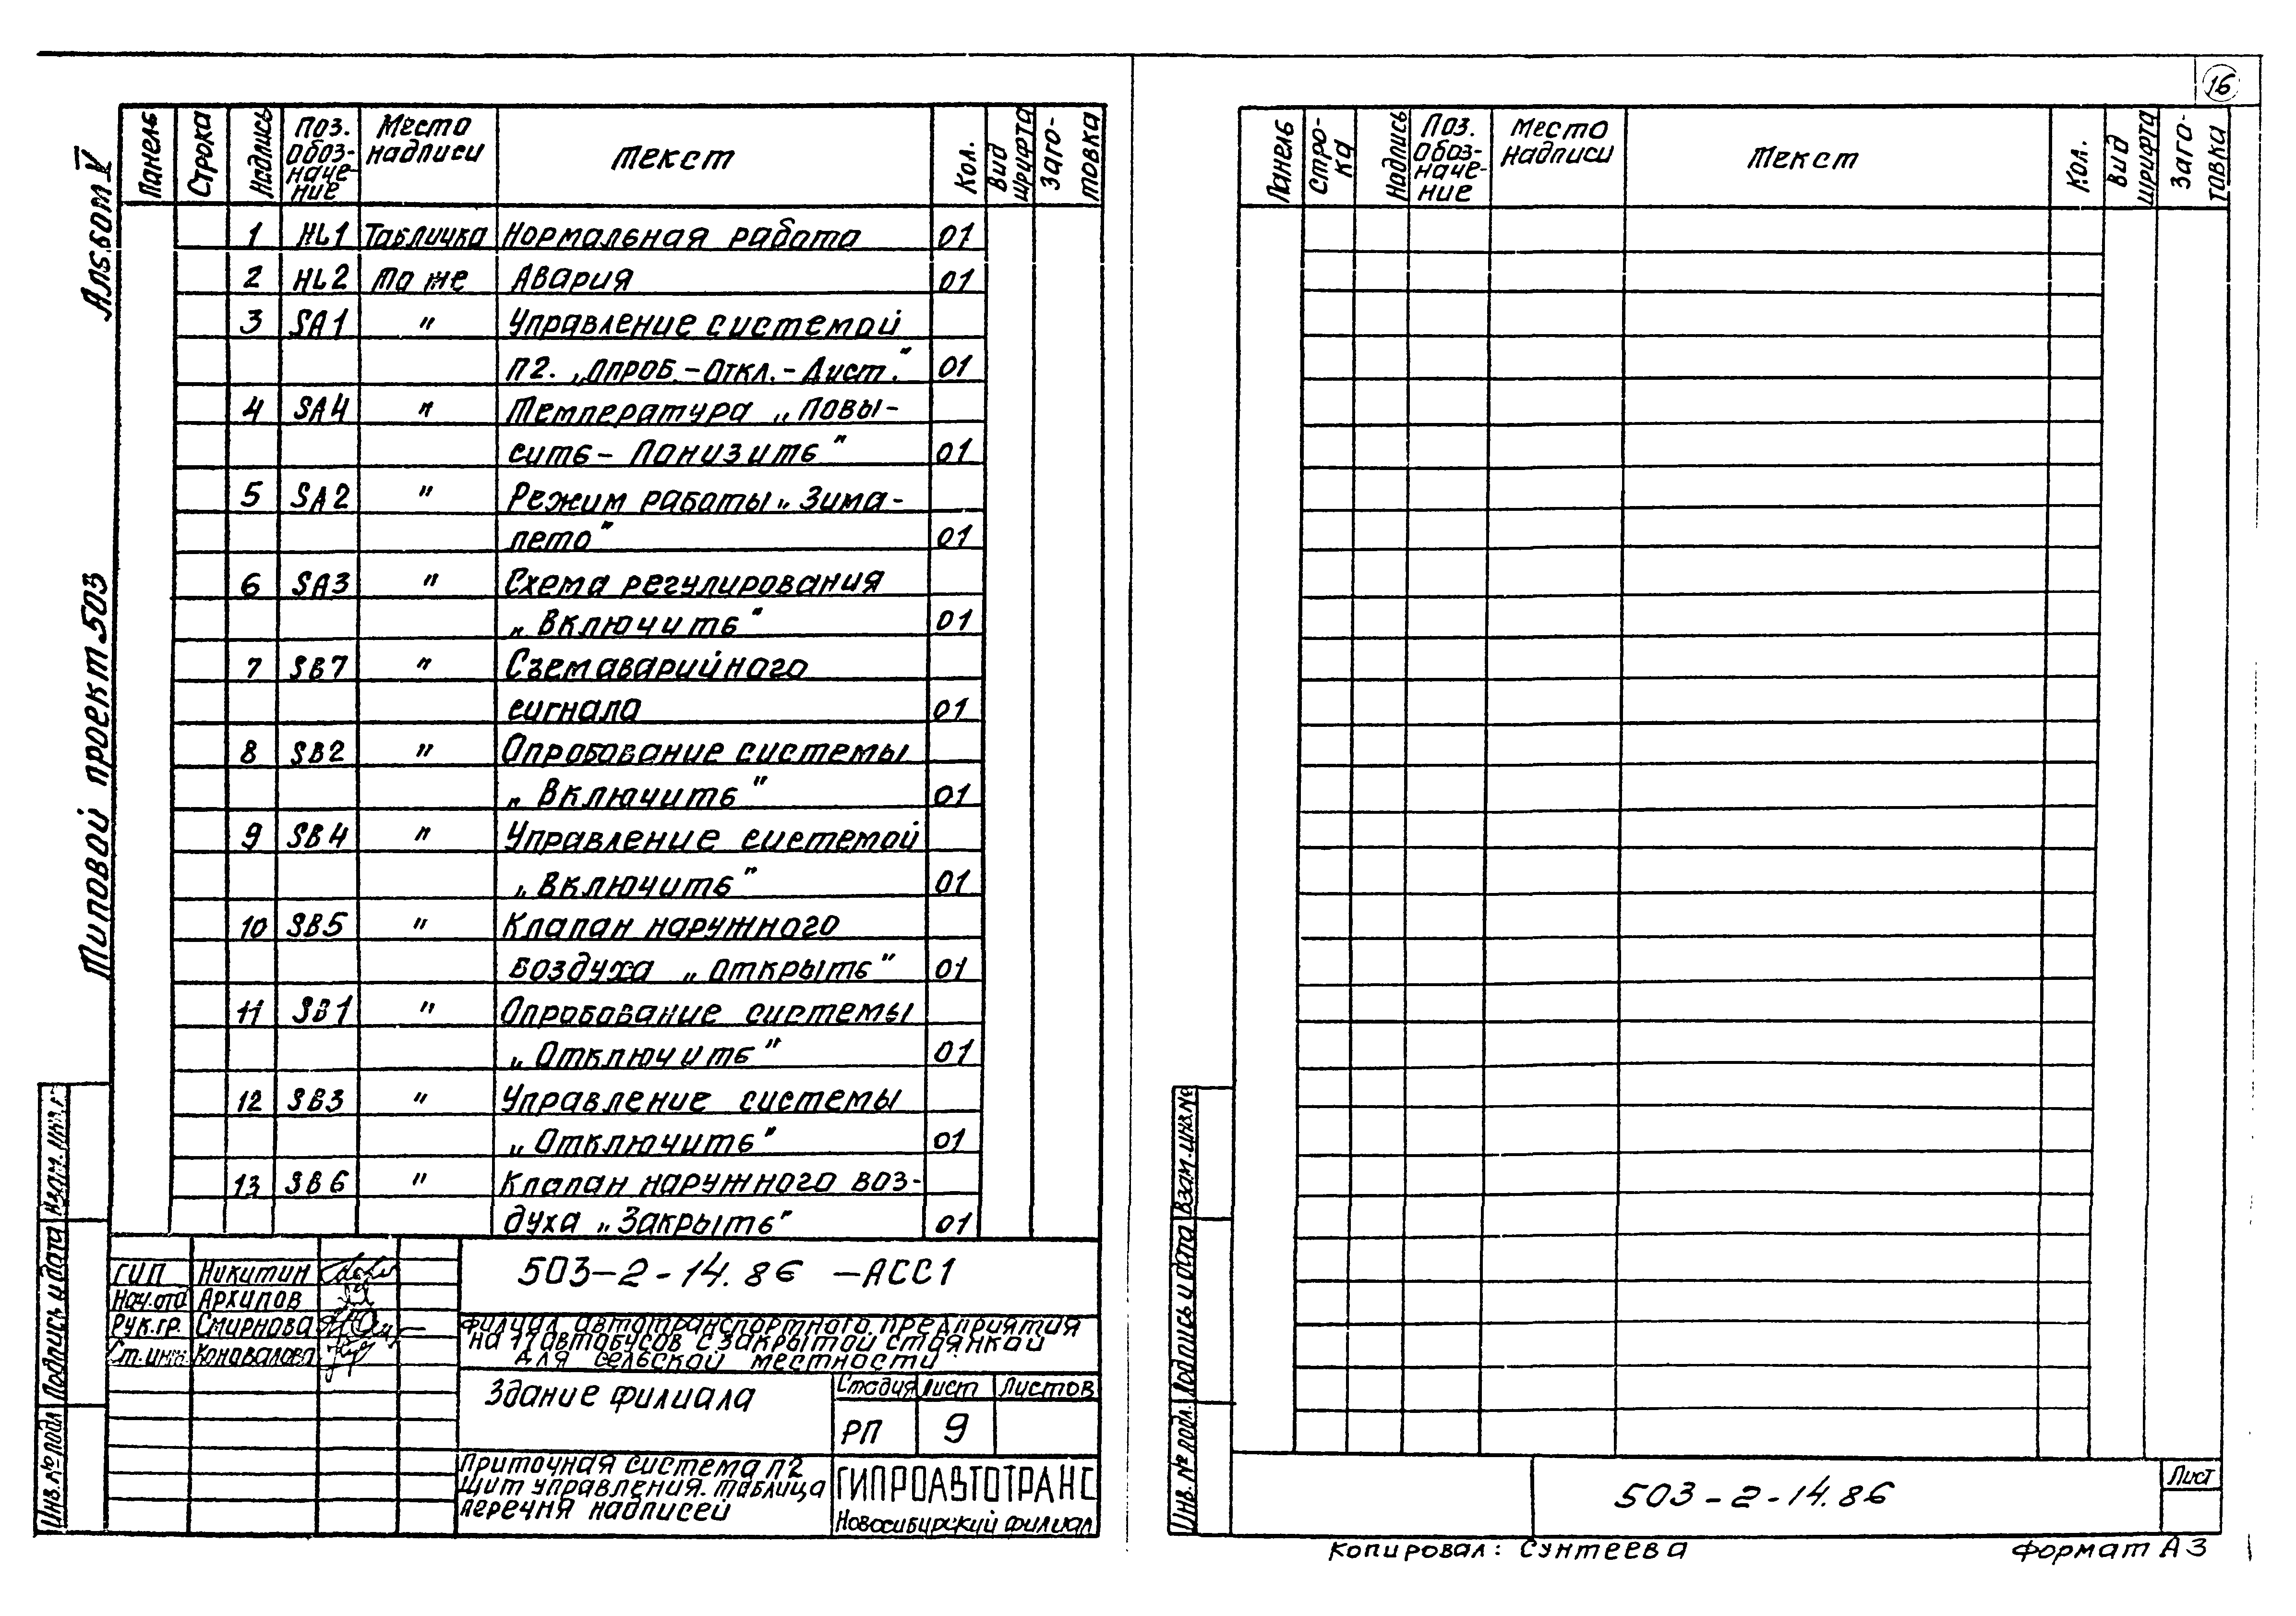 16
Альбом V
Типовой проект 503
Панель Строка Надпись Поз. обозначение Место надписи Текст Кол. Вид шрифта Заготовка
1 HL1 Табличка Нормальная работа 01
2 HL2 То же Авария 01
3 SA1 " Управление системой
П2. „Опроб.-Откл.-Дист." 01
4 SA4 " Температура „Повы-
сить- Понизить" 01
5 SA2 " Режим работы „Зима-
лето" 01
6 SA3 " Схема регулирования
„Включить" 01
7 SB7 " Съем аварийного
сигнала 01
8 SB2 " Опробование системы
„Включить" 01
9 SB4 " Управление системой
„Включить" 01
10 SB5 " Клапан наружного
воздуха „Открыть" 01
11 SB1 " Опробование системы
„Отключить" 01
12 SB3 " Управление системы
„Отключить" 01
13 SB6 " Клапан наружного воз-
духа „Закрыть" 01
Взам. инв.
Подпись и дата
Инв. № подл.
ГИП Никитин
Нач. отд Архипов
Рук. гр. Смирнова
Ст. инж. Коновалова
503-2-14.86 -АСС1
Филиал автотранспортного предприятия
на автобусов с закрытой стоянкой
для сельской местности
Здание филиала
Стадия Лист Листов
РП 9
Приточная система П2
Щит управления. Таблица
перечня надписей
ГИПРОАВТОТРАНС
Новосибирский филиал
Панель Строка Надпись Поз. обозначение Место надписи Текст Кол. Вид шрифта Заготовка
Взам. инв. №
Подпись и дата
Инв. № подл.
503-2-14.86
Лист
Копировал: Сунтеева
Формат А3